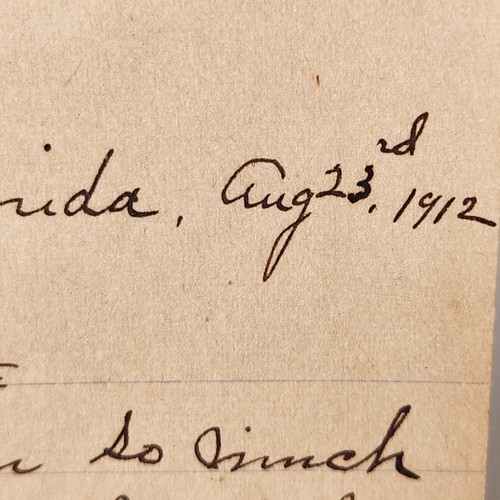 rida, Aug 23rd, 1912
so much